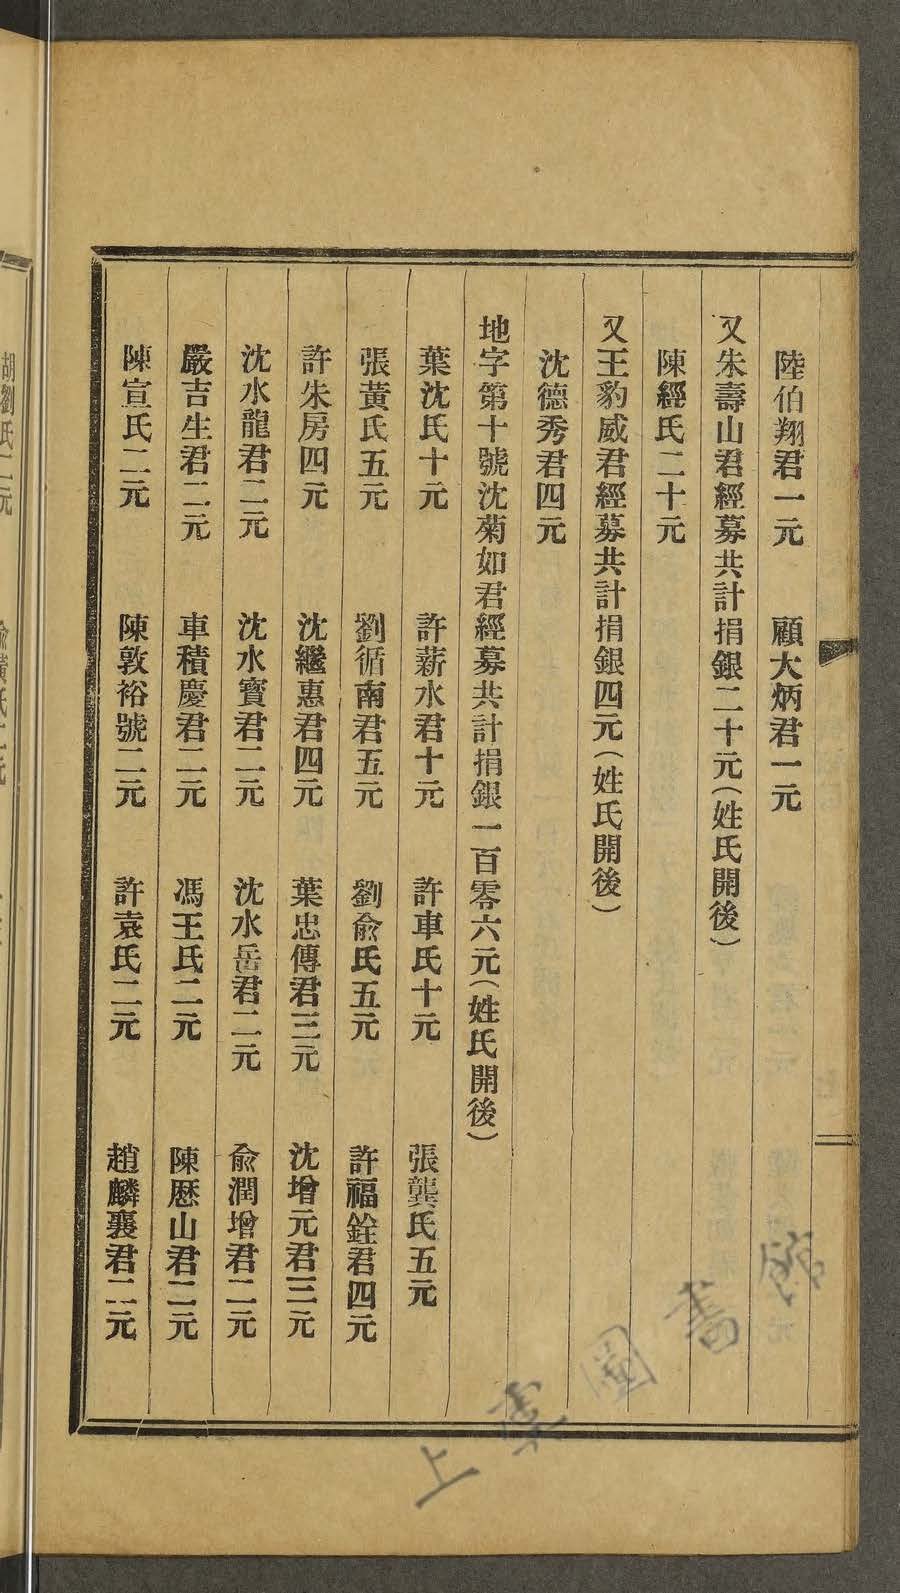 陸伯翔君一元　顧大炳君一元
又朱壽山君經募共計捐銀二十元(姓氏開後)
陳經氏二十元
又王豹威君經募共計捐銀四元(姓氏開後)
沈德秀君四元
地字第十號沈菊如君經募共計捐銀一百零六元(姓氏開後)
葉沈氏十元　許薪水君十元　許車氏十元　張龔氏五元
張黃氏五元　劉循南君五元　劉俞氏五元　許福銓君四元
許朱房四元　沈繼惠君四元　葉忠傳君三元　沈增元君三元
沈水龍君二元　沈水寶君二元　沈水岳君二元　俞潤增君二元
嚴吉生君二元　車積慶君二元　馮王氏二元　陳歷山君二元
陳宣氏二元　陳敦裕號二元　許袁氏二元　趙麟襄君二元
胡劉氏二元
上虞圖書館